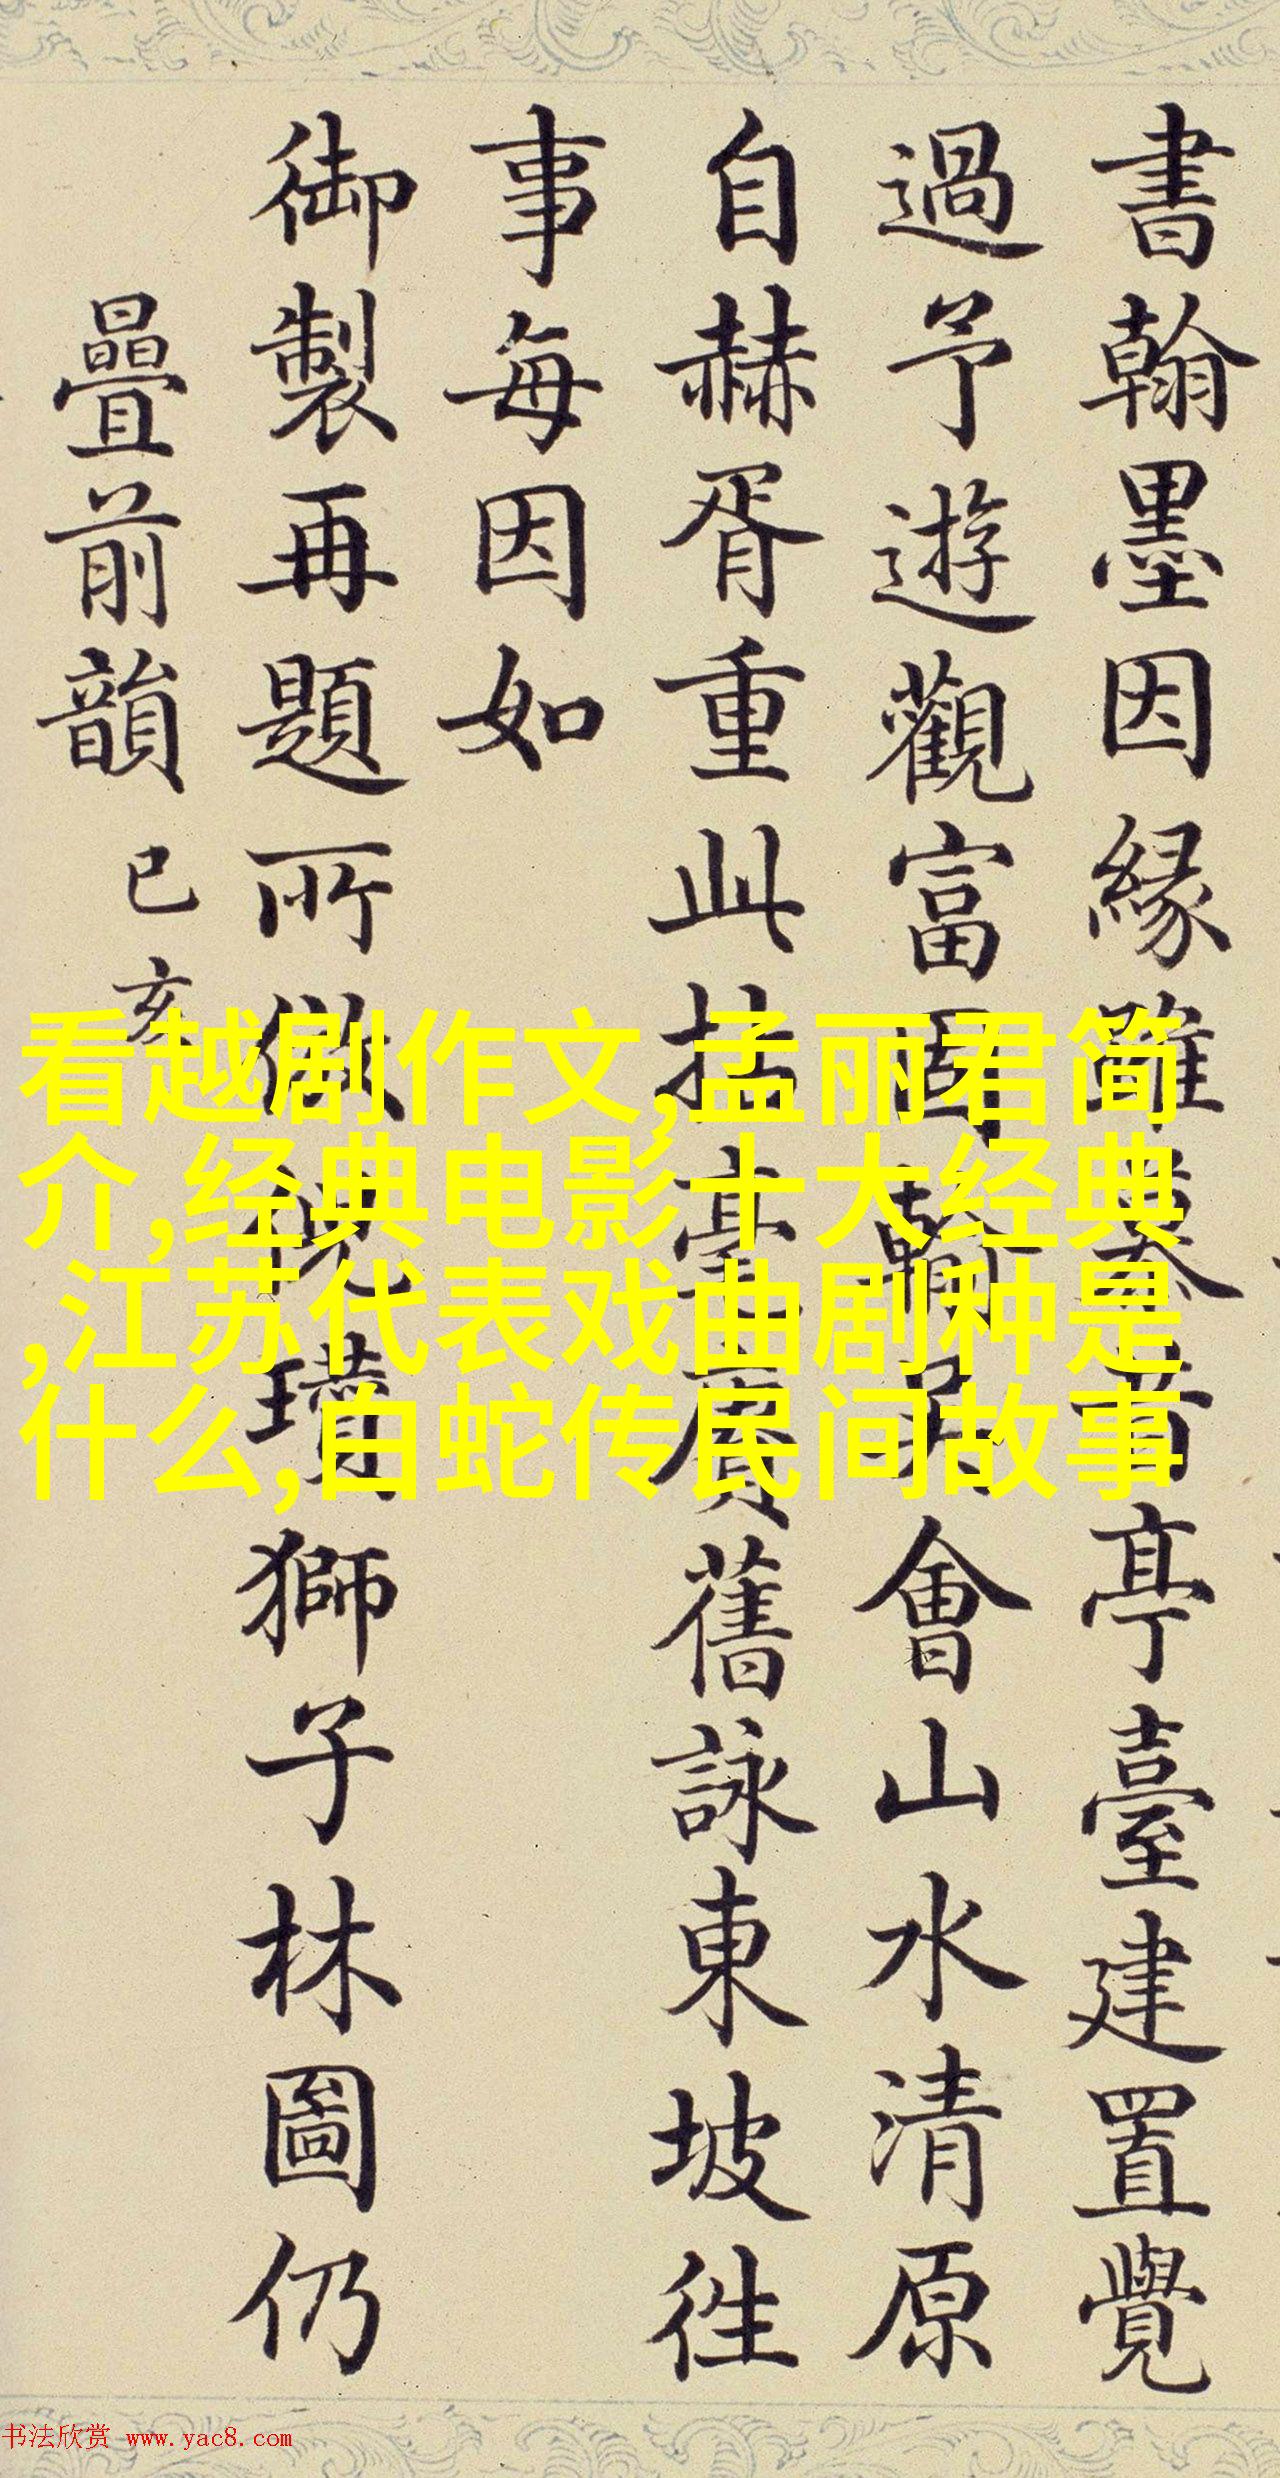 書翰墨因緣雖昔亭臺建置覺
過予遊觀富固輸吳會山水清原
自赫胥重此拈毫賡舊詠東坡往
事每因如
御製再題所倣倪瓚獅子林圖仍
疊前韻己亥
看越剧作文,孟丽君简
介,经典电影十大经典
,江苏代表戏曲剧种是
什么,白蛇传民间故事
书法欣赏 www.yac8.com